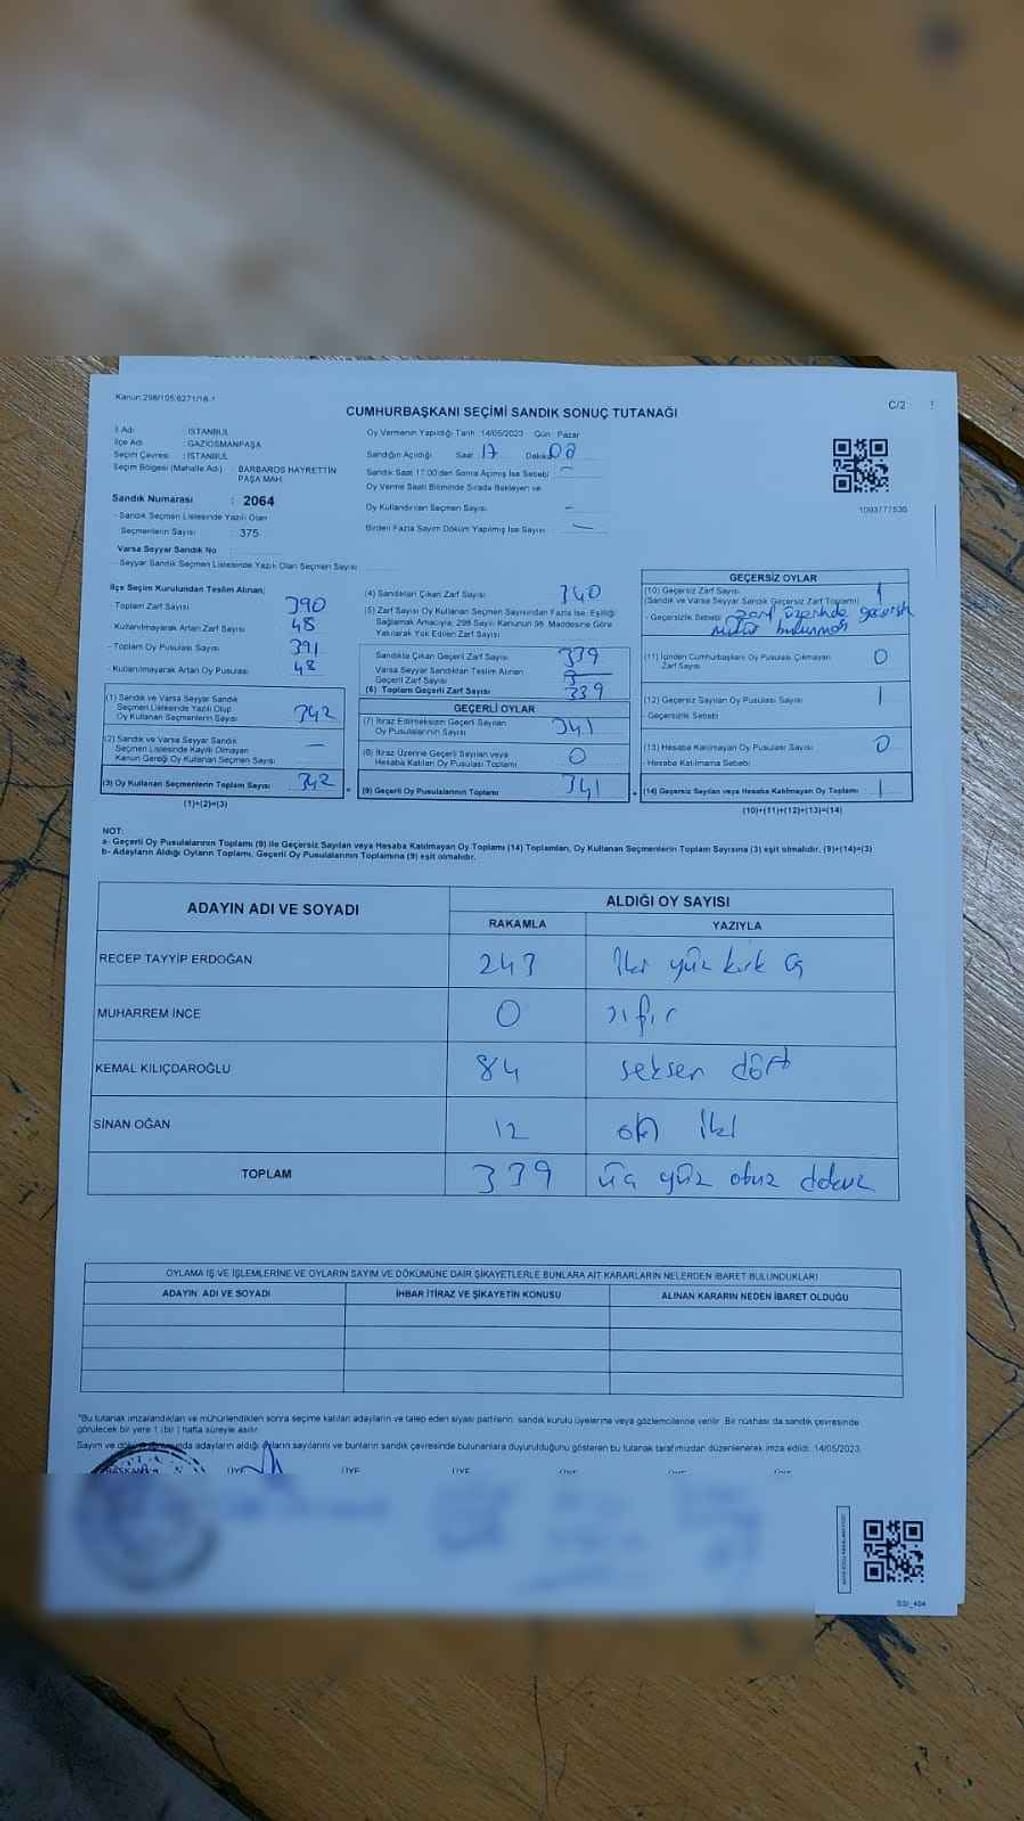 Kanun:298/105;6271/18-1
C/2
CUMHURBAŞKANI SEÇİMİ SANDIK SONUÇ TUTANAĞI
İl Adı : İSTANBUL
İlçe Adı : GAZİOSMANPAŞA
Seçim Çevresi : İSTANBUL
Seçim Bölgesi (Mahalle Adı) : BARBAROS HAYRETTİN PAŞA MAH.
Sandık Numarası : 2064
- Sandık Seçmen Listesinde Yazılı Olan
Seçmenlerin Sayısı : 375
Varsa Seyyar Sandık No
- Seyyar Sandık Seçmen Listesinde Yazılı Olan Seçmen Sayısı
Oy Vermenin Yapıldığı Tarih :14/05/2023 Gün : Pazar
Sandığın Açıldığı Saat 17 Dakika
Sandık Saat 17:00'den Sonra Açılmış İse Sebebi –
Oy Verme Saati Bitiminde Sırada Bekleyen ve
Oy Kullandırılan Seçmen Sayısı –
Birden Fazla Sayım Döküm Yapılmış İse Sayısı –
1093777535
İlçe Seçim Kurulundan Teslim Alınan;
- Toplam Zarf Sayısı 390
- Kullanılmayarak Artan Zarf Sayısı 48
- Toplam Oy Pusulası Sayısı 391
- Kullanılmayarak Artan Oy Pusulası 48
(1) Sandık ve Varsa Seyyar Sandık
Seçmen Listesinde Yazılı Olup
Oy Kullanan Seçmenlerin Sayısı 342
(2) Sandık ve Varsa Seyyar Sandık
Seçmen Listesinde Kayıtlı Olmayan
Kanun Gereği Oy Kullanan Seçmen Sayısı –
(3) Oy Kullanan Seçmenlerin Toplam Sayısı 342
(1)+(2)=(3)
(4) Sandıktan Çıkan Zarf Sayısı 340
(5) Zarf Sayısı Oy Kullanan Seçmen Sayısından Fazla İse; Eşitliği
Sağlamak Amacıyla, 298 Sayılı Kanunun 98. Maddesine Göre
Yakılarak Yok Edilen Zarf Sayısı
Sandıkta Çıkan Geçerli Zarf Sayısı 339
Varsa Seyyar Sandıktan Teslim Alınan
Geçerli Zarf Sayısı
(6) Toplam Geçerli Zarf Sayısı 339
GEÇERLİ OYLAR
(7) İtiraz Edilmeksizin Geçerli Sayılan
Oy Pusulalarının Sayısı 341
(8) İtiraz Üzerine Geçerli Sayılan veya
Hesaba Katılan Oy Pusulası Toplamı 0
(9) Geçerli Oy Pusulalarının Toplamı 341
GEÇERSİZ OYLAR
(10) Geçersiz Zarf Sayısı 1
(Sandık ve Varsa Seyyar Sandık Geçersiz Zarf Toplamı)
- Geçersizlik Sebebi: zarf üzerinde
bulunması
(11) İçinden Cumhurbaşkanı Oy Pusulası Çıkmayan
Zarf Sayısı 0
(12) Geçersiz Sayılan Oy Pusulası Sayısı 1
- Geçersizlik Sebebi
(13) Hesaba Katılmayan Oy Pusulası Sayısı 0
- Hesaba Katılmama Sebebi:
(14) Geçersiz Sayılan veya Hesaba Katılmayan Oy Toplamı 1
(10)+(11)+(12)+(13)=(14)
NOT:
a- Geçerli Oy Pusulalarının Toplamı (9) ile Geçersiz Sayılan veya Hesaba Katılmayan Oy Toplamı (14) Toplamları, Oy Kullanan Seçmenlerin Toplam Sayısına (3) eşit olmalıdır. (9)+(14)=(3)
b- Adayların Aldığı Oyların Toplamı, Geçerli Oy Pusulalarının Toplamına (9) eşit olmalıdır.
ADAYIN ADI VE SOYADI ALDIĞI OY SAYISI
RAKAMLA YAZIYLA
RECEP TAYYİP ERDOĞAN 243 İki yüz kırk üç
MUHARREM İNCE 0 sıfır
KEMAL KILIÇDAROĞLU 84 seksen dört
SİNAN OĞAN 12 on iki
TOPLAM 339 üç yüz otuz dokuz
OYLAMA İŞ VE İŞLEMLERİNE VE OYLARIN SAYIM VE DÖKÜMÜNE DAİR ŞİKAYETLERLE BUNLARA AİT KARARLARIN NELERDEN İBARET BULUNDUKLARI
ADAYIN ADI VE SOYADI İHBAR İTİRAZ VE ŞİKAYETİN KONUSU ALINAN KARARIN NEDEN İBARET OLDUĞU
*Bu tutanak imzalandıktan ve mühürlendikten sonra seçime katılan adayların ve talep eden siyasi partilerin, sandık kurulu üyelerine veya gözlemcilerine verilir. Bir nüshası da sandık çevresinde
görülecek bir yere 1 (bir) hafta süreyle asılır.
Sayım ve döküm sonunda adayların aldığı oyların sayılarını ve bunların sandık çevresinde bulunanlara duyurulduğunu gösteren bu tutanak tarafımızdan düzenlenerek imza edildi. 14/05/2023
BAŞKAN ÜYE ÜYE ÜYE ÜYE ÜYE ÜYE